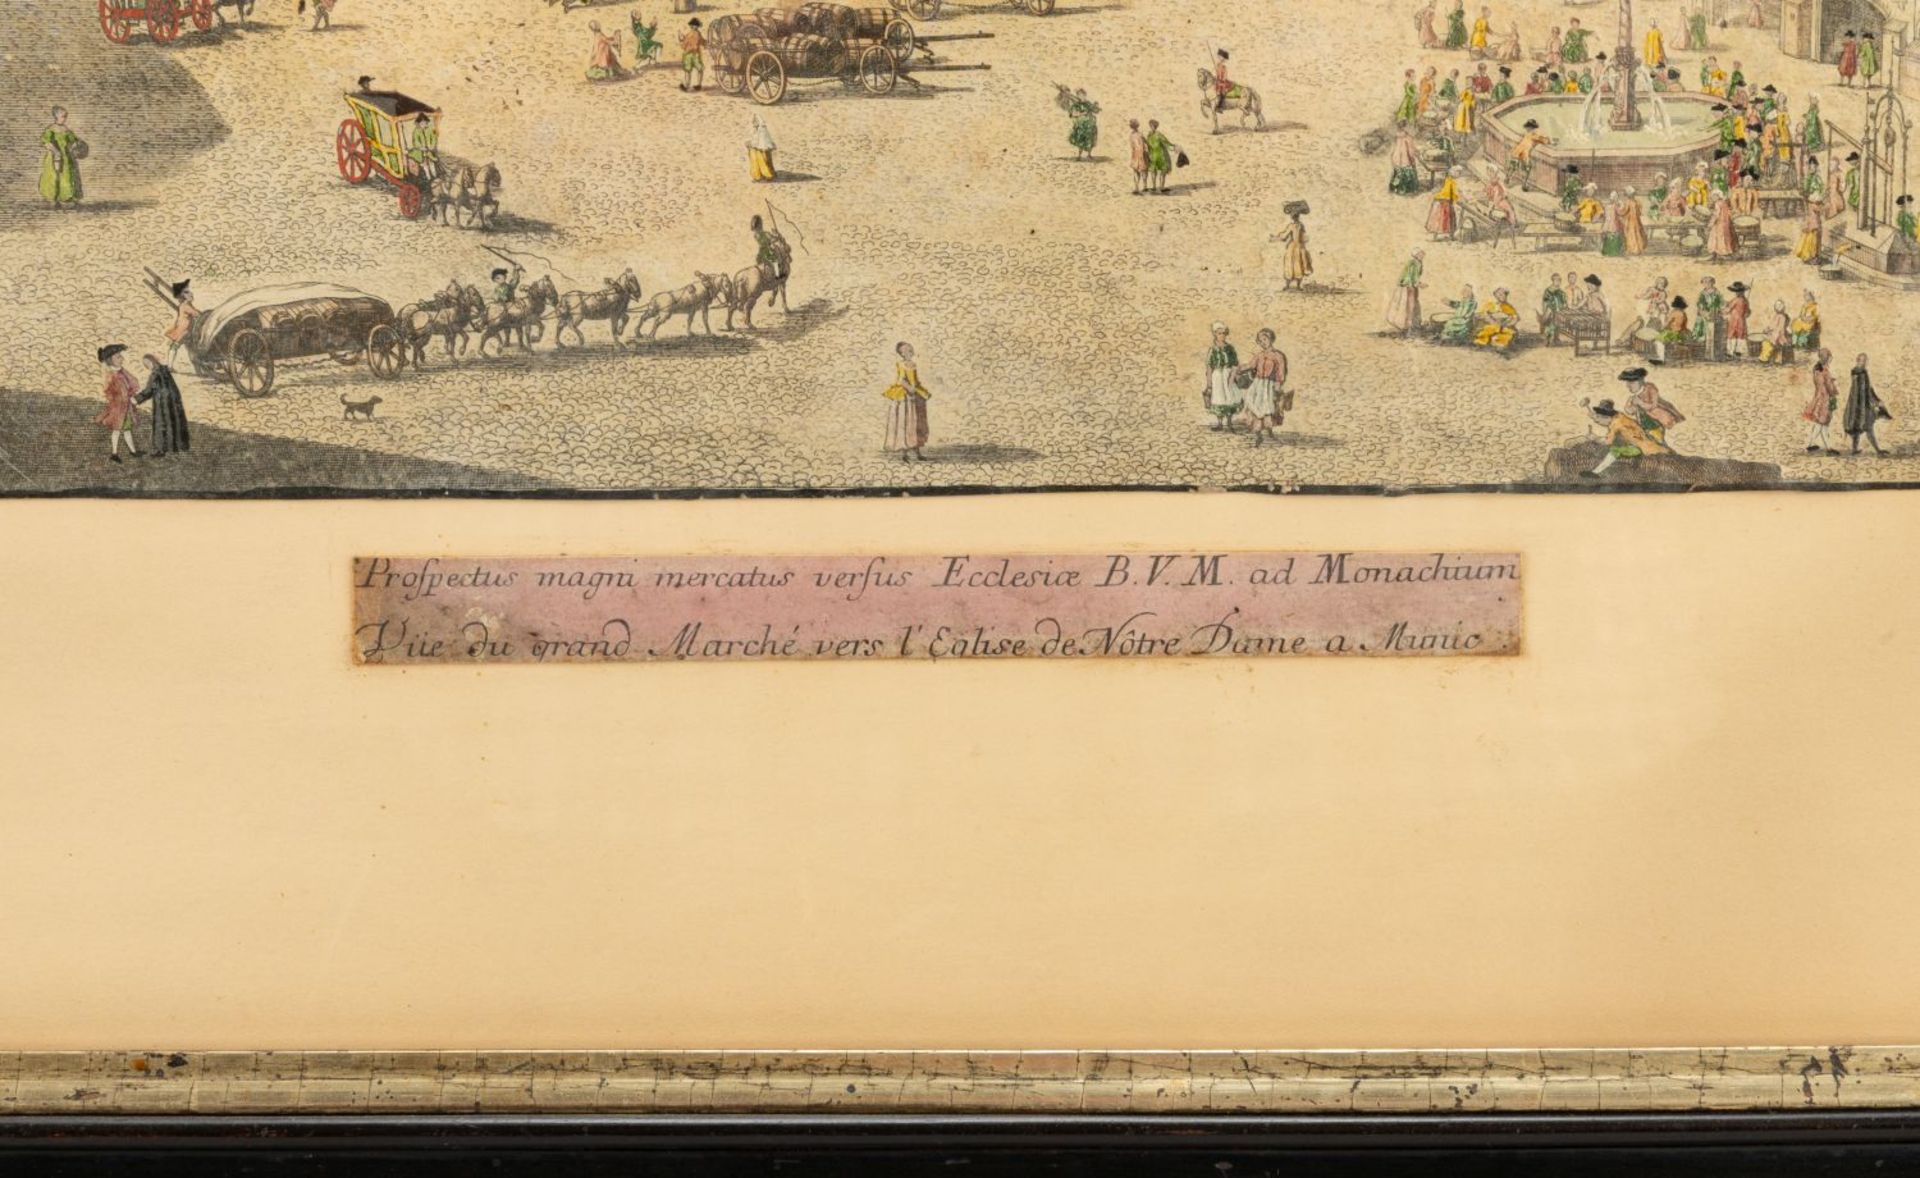 Proſpectus magni mercatus verſus Ecclesiæ B. V. M. ad Monachium
Vüe du grand Marché vers l'Eglise de Nôtre Dame a Munic.